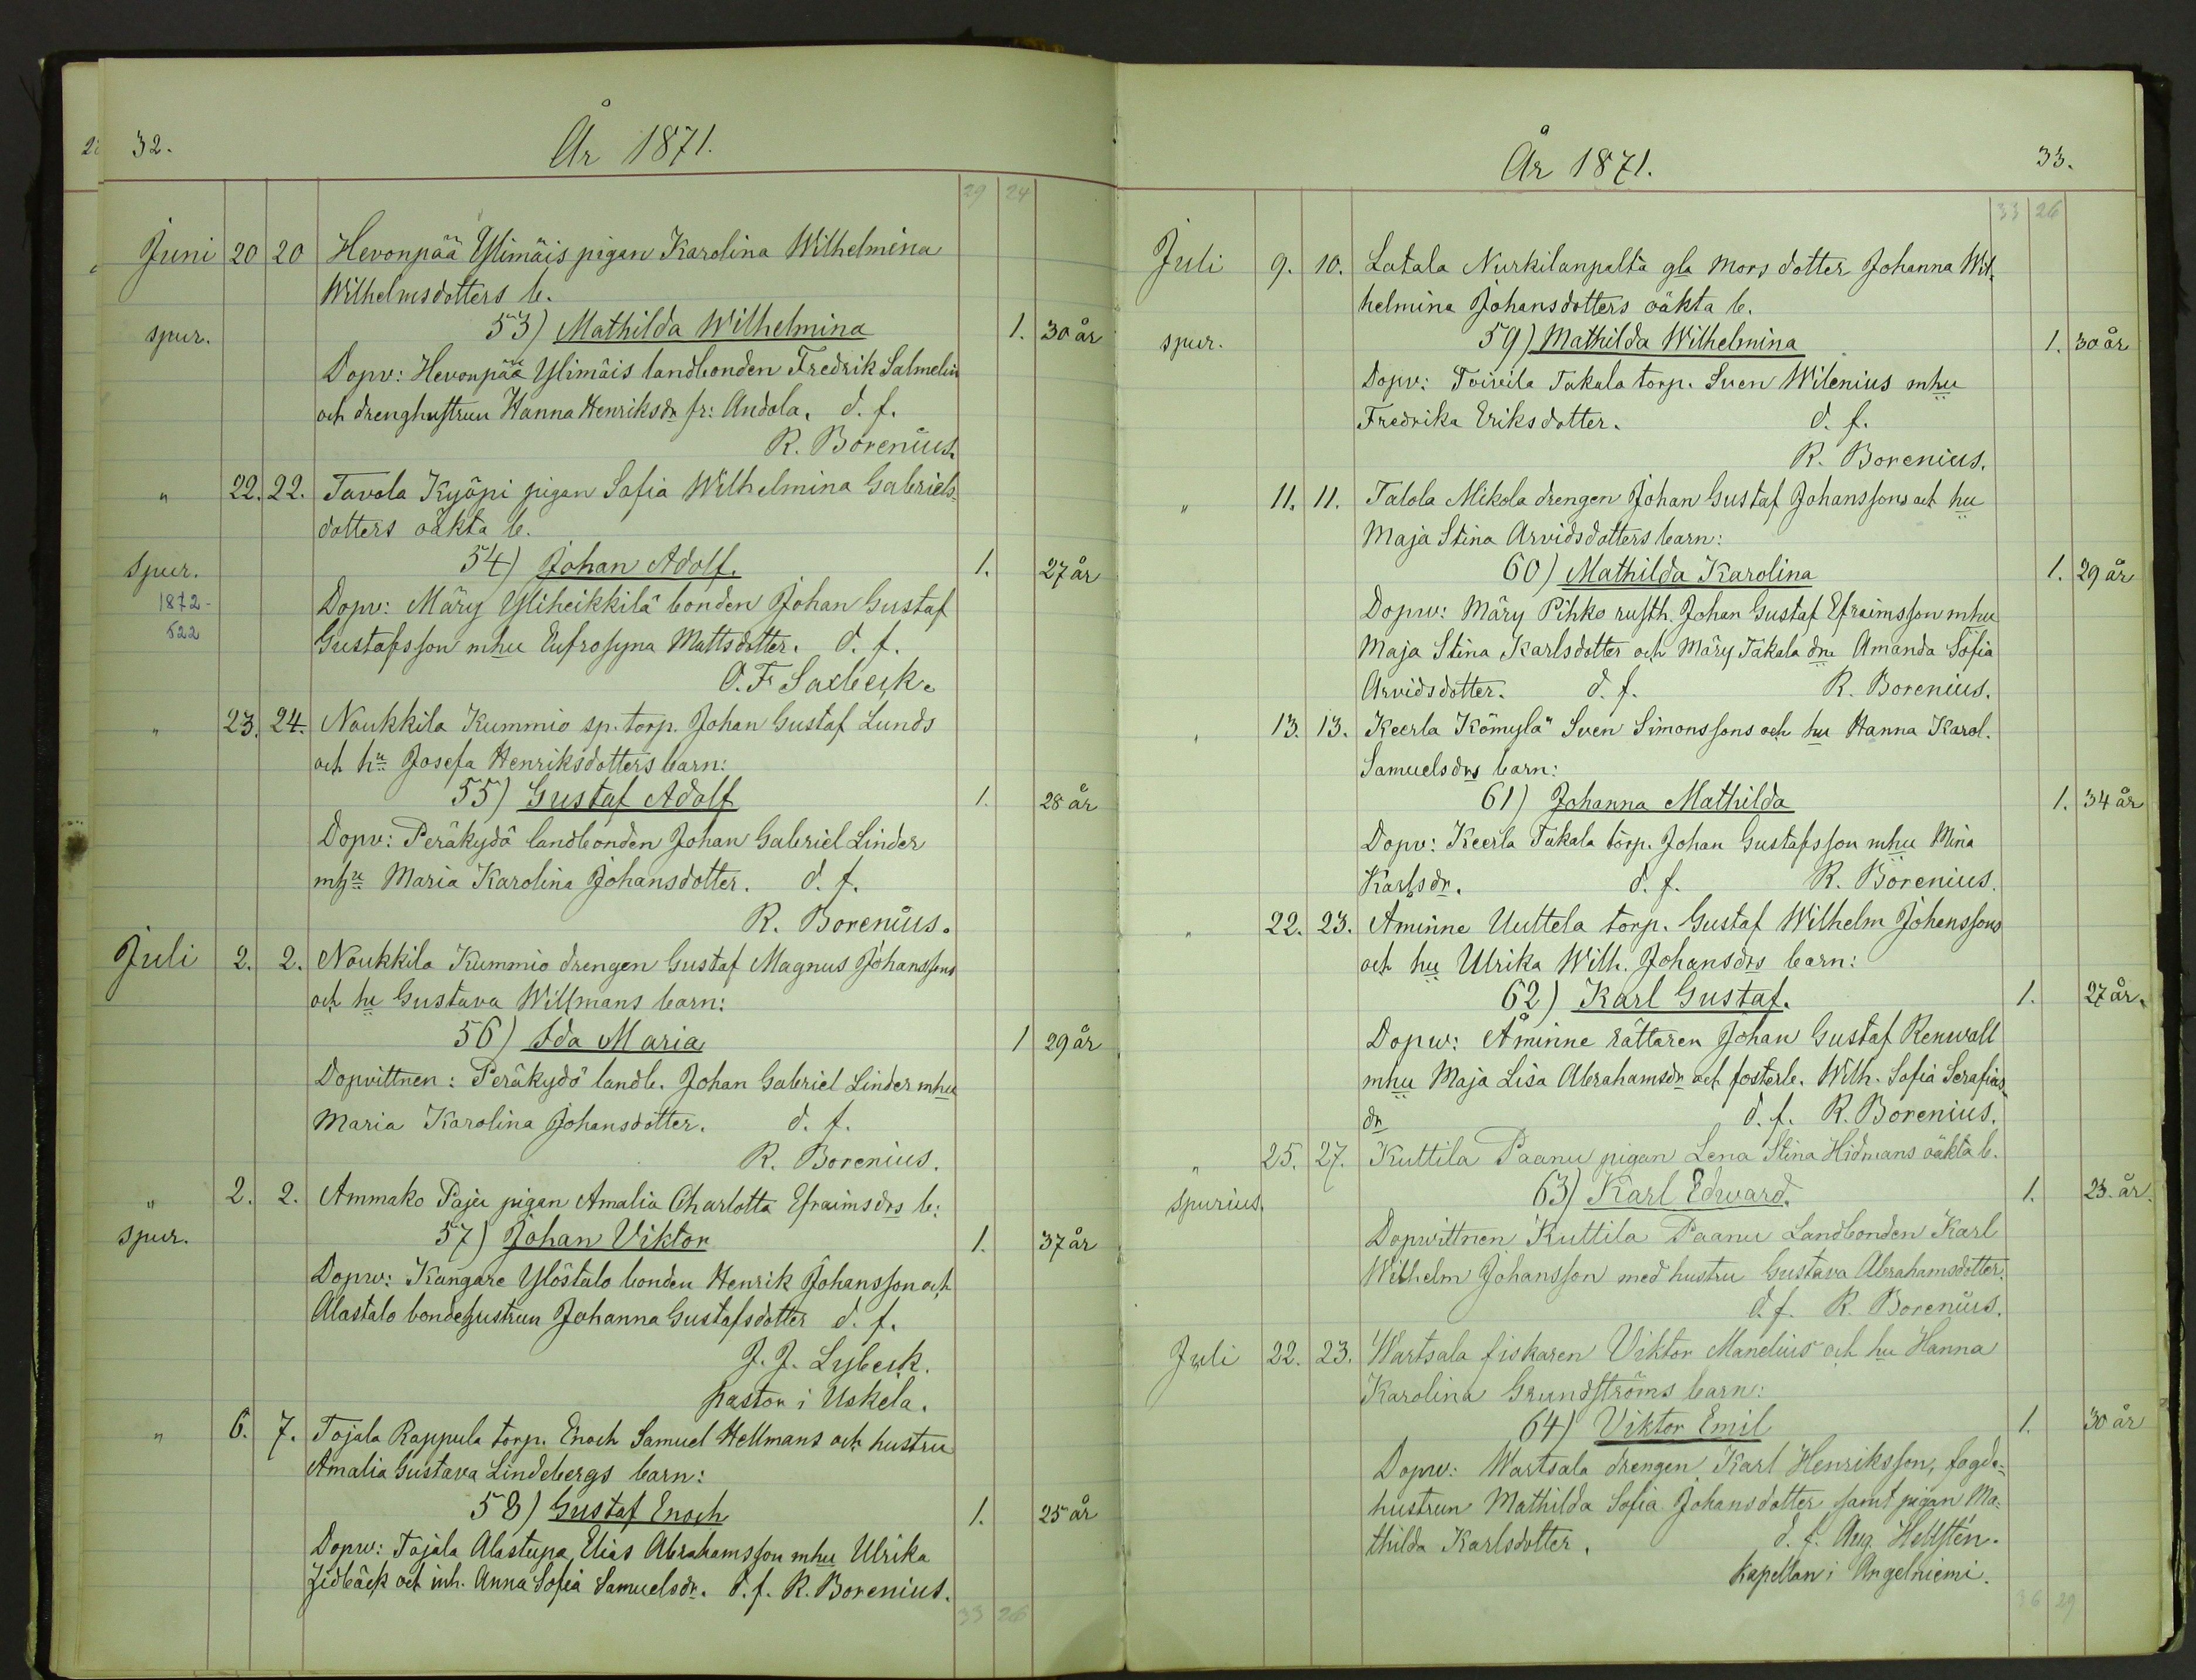 32.
År 1871.
29 24
Juni 20 20 Hevonpää Ylimäis pigan Karolina Wilhelmina
Wilhelmsdotters b.
spur. 53) Mathilda Wilhelmina 1. 30 år
Dopv: Hevonpää Ylimäis landbonden Fredrik Salmelin
och drenghustrun Hanna Henriksdr fr: Andola. d. f.
R. Borenius.
" 22. 22. Tavola Kyöpi pigan Sofia Wilhelmina Gabriels-
dotters oäkta b.
spur. 54) Johan Adolf. 1. 27 år
1872- Dopv: Märy Yliheikkilä bonden Johan Gustaf
522 Gustafsson mhu Eufrosyna Mattsdotter. d. f.
O. F. Saxbeck.
" 23. 24. Noukkila Kummio sp. torp. Johan Gustaf Lunds
och hu Josefa Henriksdotters barn:
55) Gustaf Adolf 1. 28 år
Dopv: Peräkydö landbonden Johan Gabriel Linder
mhu Maria Karolina Johansdotter. d. f.
R. Borenius.
Juli 2. 2. Noukkila Kummio drengen Gustaf Magnus Johanssons
och hu Gustava Willmans barn:
56) Ida Maria 1 29 år
Dopvittnen: Peräkydö landb. Johan Gabriel Linder mhu
Maria Karolina Johansdotter. d. f.
R. Borenius.
" 2. 2. Ammako Paju pigan Amalia Charlotta Efraimsdrs b:
spur. 57) Johan Viktor 1. 37 år
Dopv: Kangare Ylöstalo bonden Henrik Johansson och
Alastalo bondehustrun Johanna Gustafsdotter d. f.
J. J. Lybeck.
pastor i Uskela.
" 6. 7. Tojala Rappula torp. Enoch Samuel Hellmans och hustru
Amalia Gustava Lindebergs barn:
58) Gustaf Enoch 1. 25 år
Dopv: Tojala Alastupa, Elias Abrahamsson mhu Ulrika
Zidbäck och inh. Anna Sofia Samuelsdr. d. f. R. Borenius.
33 26
År 1871.
33.
33 26
Juli 9. 10. Latala Nurkilanpalta gla Mors dotter Johanna Wil-
helmina Johansdotters oäkta b.
spur. 59) Mathilda Wilhelmina 1. 30 år
Dopv: Toivila Takala torp. Sven Wilenius mhu
Fredrika Eriksdotter. d. f.
R. Borenius.
" 11. 11. Talola Mikola drengen Johan Gustaf Johanssons och hu
Maja Stina Arvidsdotters barn:
60) Mathilda Karolina 1. 29 år
Dopv: Märy Pihko rusth. Johan Gustaf Efraimsson mhu
Maja Stina Karlsdotter och Märy Takala dra Amanda Sofia
Arvidsdotter. d. f. R. Borenius.
" 13. 13. Keerla Kömylä Sven Simonssons och hu Hanna Karol.
Samuelsdrs barn:
61) Johanna Mathilda 1. 34 år
Dopv: Keerla Takala torp. Johan Gustafsson mhu Mina
Karlsdr. d. f. R. Borenius.
" 22. 23. Aminne Uuttela torp. Gustaf Wilhelm Johanssons
och hu Ulrika Wilh. Johansdrs barn:
62) Karl Gustaf. 1. 27 år.
Dopv: Åminne rättaren Johan Gustaf Renwall
mhu Maja Lisa Abrahamsdr och fosterb. Wilh. Sofia Serafias
dr d. f. R. Borenius.
" 25. 27. Kuttila Paanu pigan Lena Stina Hidmans oäkta b.
spurius. 63) Karl Edward. 1. 23. år.
Dopwittnen Kuttila Paanu Landbonden Karl
Wilhelm Johansson med hustru Gustava Abrahamsdotter.
d. f. R. Borenius.
Juli 22. 23. Wartsala fiskaren Viktor Manelius och hu Hanna
Karolina Grundströms barn:
64) Viktor Emil 1. 30 år
Dopv: Wartsala drengen Karl Henriksson, fogde-
hustrun Mathilda Sofia Johansdotter samt pigan Ma-
thilda Karlsdotter. d. f. Aug. Hellsten.
Kapellan i Angelniemi.
36 29